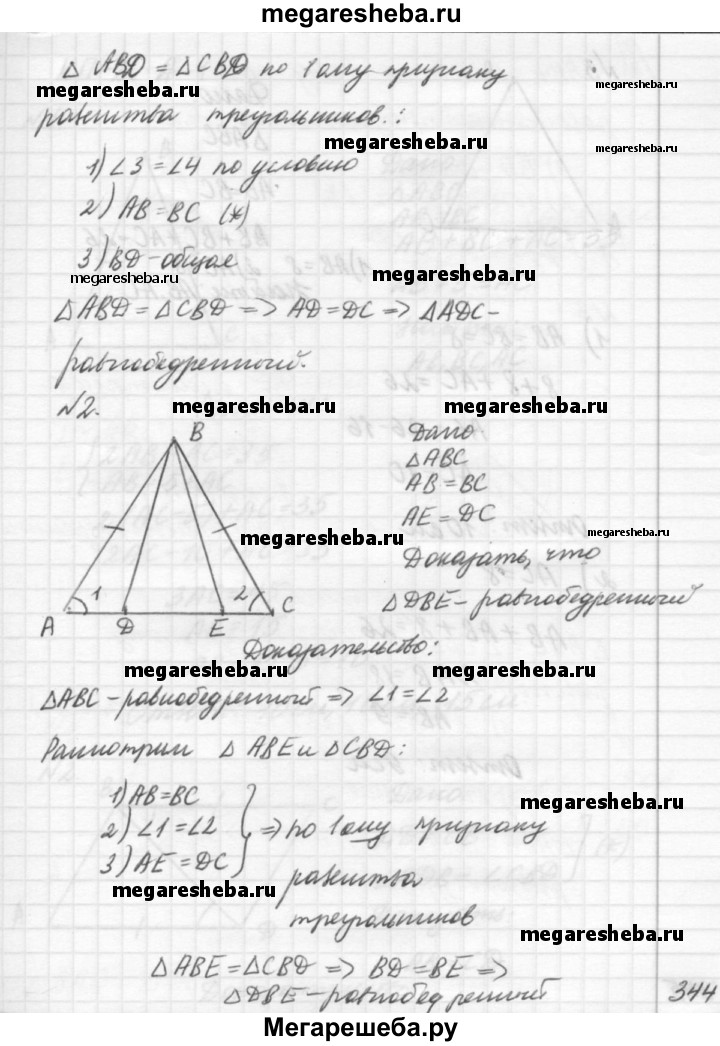 megaresheba.ru
△ ABD = △CBD по 1 ому признаку
megaresheba.ru
megaresheba.ru
равенства треугольников.:
megaresheba.ru
megaresheba.ru
1) ∠3 = ∠4 по условию
2) AB = BC (*)
3) BD - общая
megaresheba.ru
megaresheba.ru
△ABD = △CBD => AD = DC => △ADC -
равнобедренный.
№2.
megaresheba.ru
megaresheba.ru
B
Дано
△ABC
AB = BC
AE = DC
megaresheba.ru
megaresheba.ru
Доказать, что
△DBE - равнобедренный
1
2
A
D
E
C
Доказательство:
megaresheba.ru
megaresheba.ru
△ABC - равнобедренный => ∠1 = ∠2
Рассмотрим △ ABE и △CBD:
1) AB = BC
megaresheba.ru
2) ∠1 = ∠2 => по 1ому признаку
3) AE = DC
megaresheba.ru
равенства
треугольников
megaresheba.ru
△ABE = △CBD => BD = BE =>
△DBE - равнобедренный
344
Мегарешеба.ру